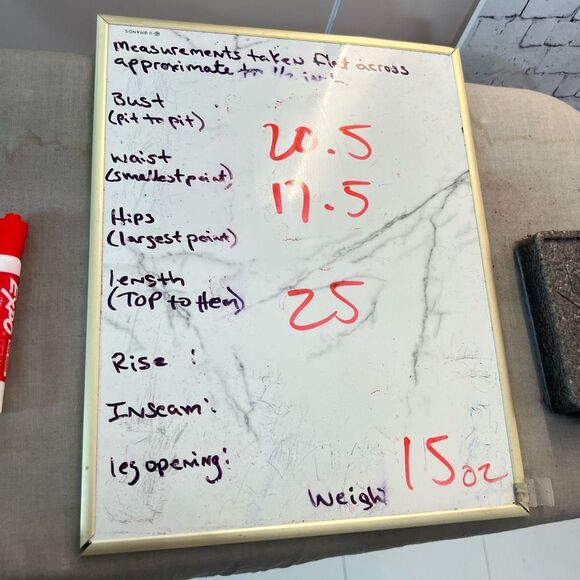 U BRANDS
measurements taken flat across
approximate to 1/2 inch
Bust
(pit to pit)
20.5
waist
(smallest point)
17.5
Hips
(largest point)
length
(TOP to Hem)
25
Rise :
Inseam:
leg opening:
Weigh
15 oz
EXPO